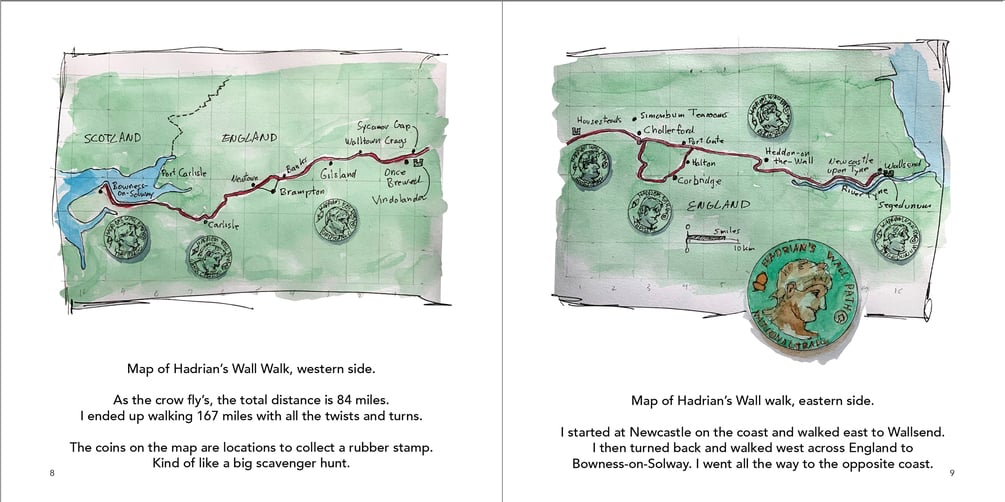 SCOTLAND
ENGLAND
Sycamor Gap
Walltown Crags
Port Carlisle
Banks
Bowness-
on-Solway
Newtown
Gilsland
Once
Brewed
Brampton
Vindolanda
Carlisle
Map of Hadrian's Wall Walk, western side.
As the crow fly's, the total distance is 84 miles.
I ended up walking 167 miles with all the twists and turns.
The coins on the map are locations to collect a rubber stamp.
Kind of like a big scavenger hunt.
8
Housesteads
Simonbum Tearooms
Chollerford
Port Gate
Halton
Corbridge
Heddon-on
-the-Wall
Newcastle
upon Tyne
Wallsend
River Tyne
Segedunum
ENGLAND
5 miles
10 km
HADRIAN'S WALL PATH
NATIONAL TRAIL
Map of Hadrian's Wall walk, eastern side.
I started at Newcastle on the coast and walked east to Wallsend.
I then turned back and walked west across England to
Bowness-on-Solway. I went all the way to the opposite coast.
9